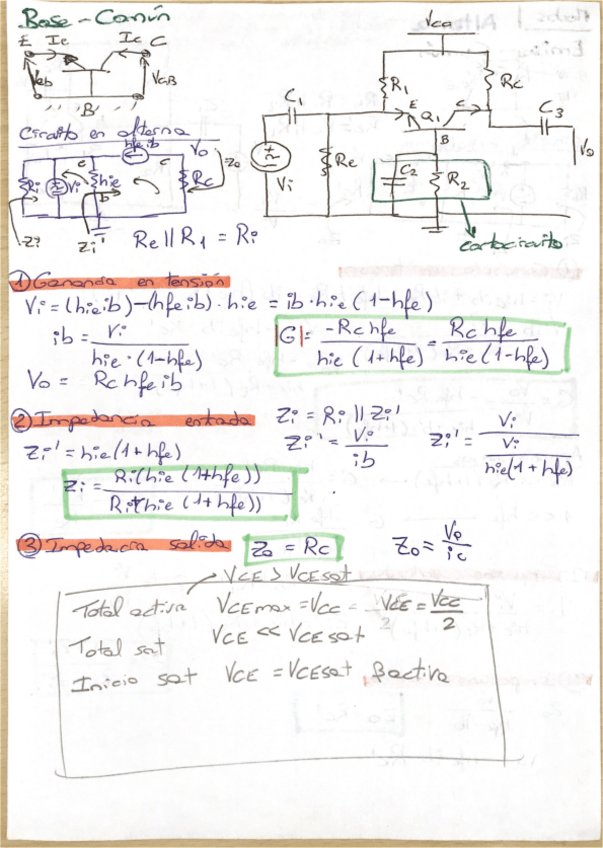 Base-Común
E Ie Ic C
VEB VCB
B
Vcc
R1 Rc
C1 E Q1 C C3
B
Vi Re C2 R2 Vo
cortocircuito
Circuito en alterna
hfe ib Vo
e c Zo
Ri Vi hie b Rc
Zi Zi'
Re || R1 = Ri
1) Ganancia en tensión
Vi = (hie ib) - (hfe ib) · hie = ib · hie (1 - hfe)
ib = Vi / hie · (1 - hfe)
|G| = -Rc hfe / hie (1 + hfe) = Rc hfe / hie (1 - hfe)
Vo = Rc hfe ib
2) Impedancia entrada
Zi = Ri || Zi'
Zi' = hie (1 + hfe)
Zi' = Vi / ib
Zi' = Vi / Vi / hie (1 + hfe)
Zi = Ri (hie (1 + hfe)) / Ri + hie (1 + hfe))
3) Impedacia salida
Zo = Rc
Zo = Vo / ic
VCE > VCE sat
Total activa VCE max = Vcc = VCE = Vcc / 2
Total sat VCE << VCE sat
Inicio sat VCE = VCE sat βactiva